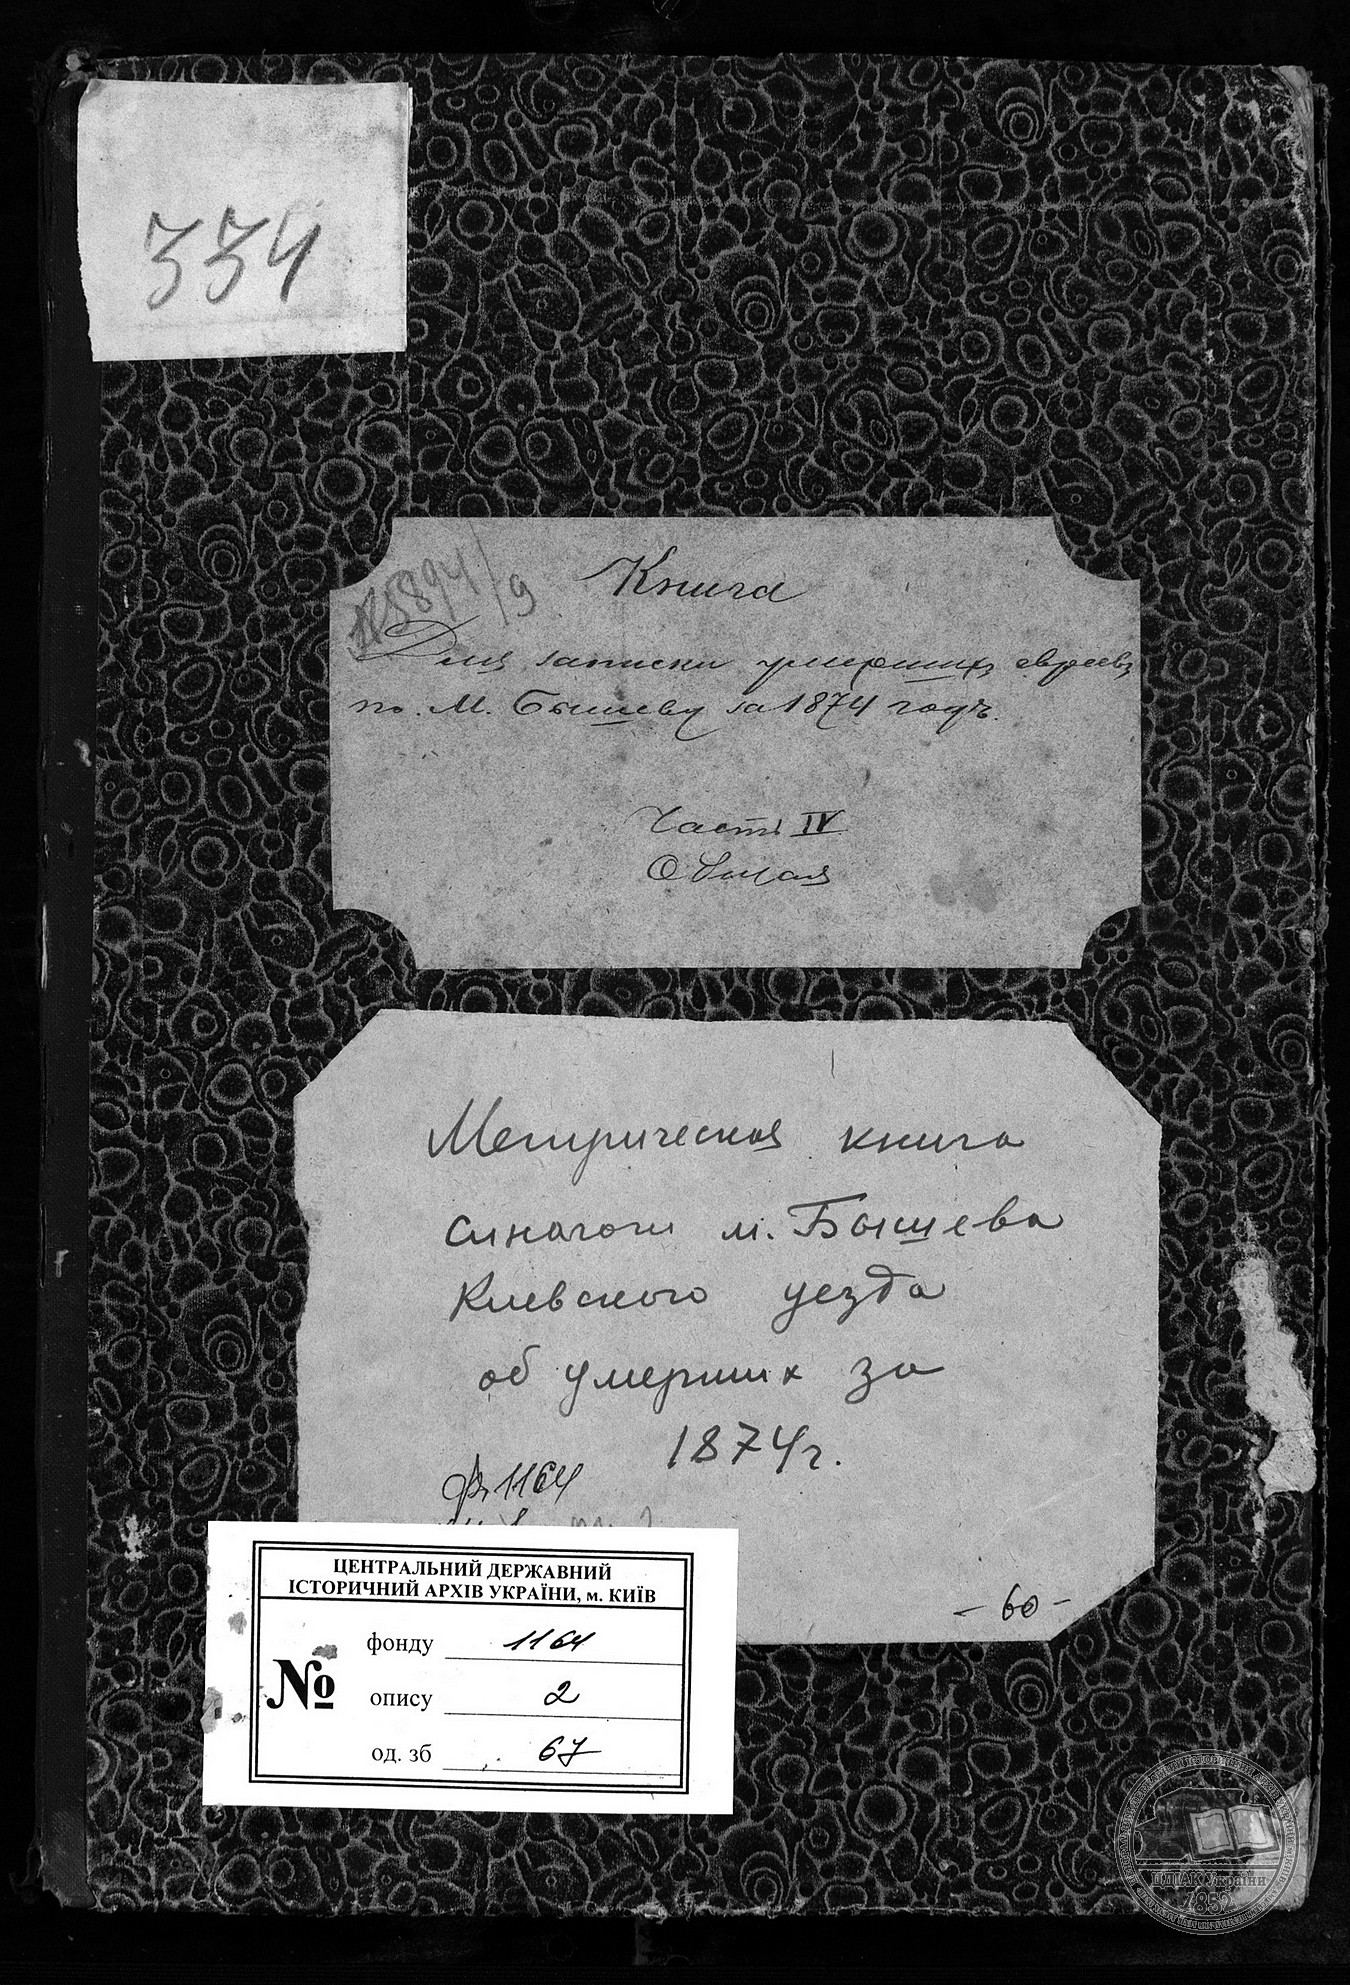 334
№5894/9
Книга
Для записки умершихъ евреевъ
по м. Бышеву за 1874 годъ.
Часть IV
О
Метрическая книга
синагоги м. Бышева
Киевского уезда
об умерших за
1874г.
ф. 1164
- 60 -
ЦЕНТРАЛЬНИЙ ДЕРЖАВНИЙ
ІСТОРИЧНИЙ АРХІВ УКРАЇНИ, м. КИЇВ
№
фонду 1164
опису 2
од. зб 67
ЦДІАК України
1852